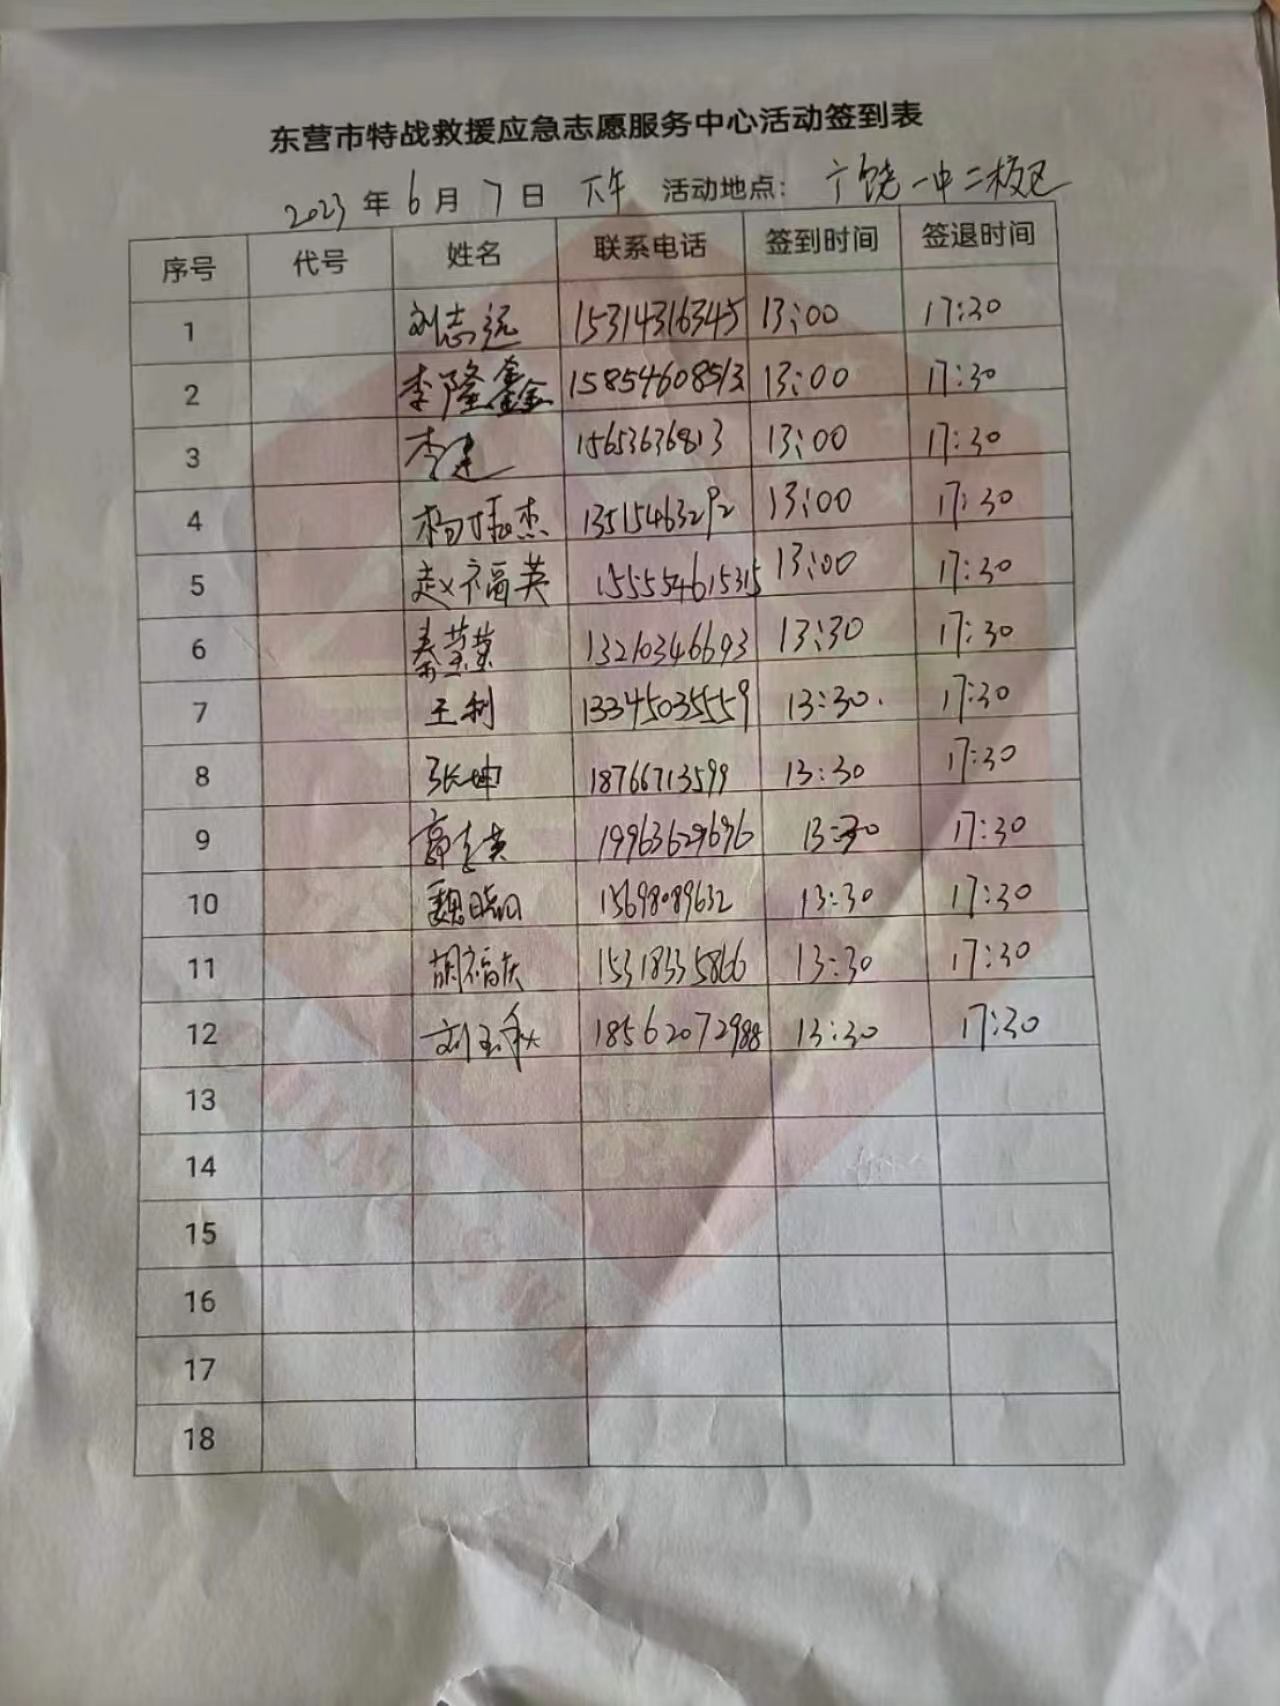 东营市特战救援应急志愿服务中心活动签到表
2023年6月7日 下午 活动地点：广饶一中二校区
序号 代号 姓名 联系电话 签到时间 签退时间
1 刘志远 15314316345 13:00 17:30
2 李隆鑫 15854608513 13:00 17:30
3 李建 15653636813 13:00 17:30
4 13515463292 13:00 17:30
5 赵福英 155554615315 13:00 17:30
6 13210346693 13:30 17:30
7 王利 13345035559 13:30. 17:30
8 张坤 18766713599 13:30 17:30
9 19963629696 13:30 17:30
10 15698089632 13:30 17:30
11 胡福庆 15318335866 13:30 17:30
12 刘玉秋 18562072988 13:30 17:30
13
14
15
16
17
18